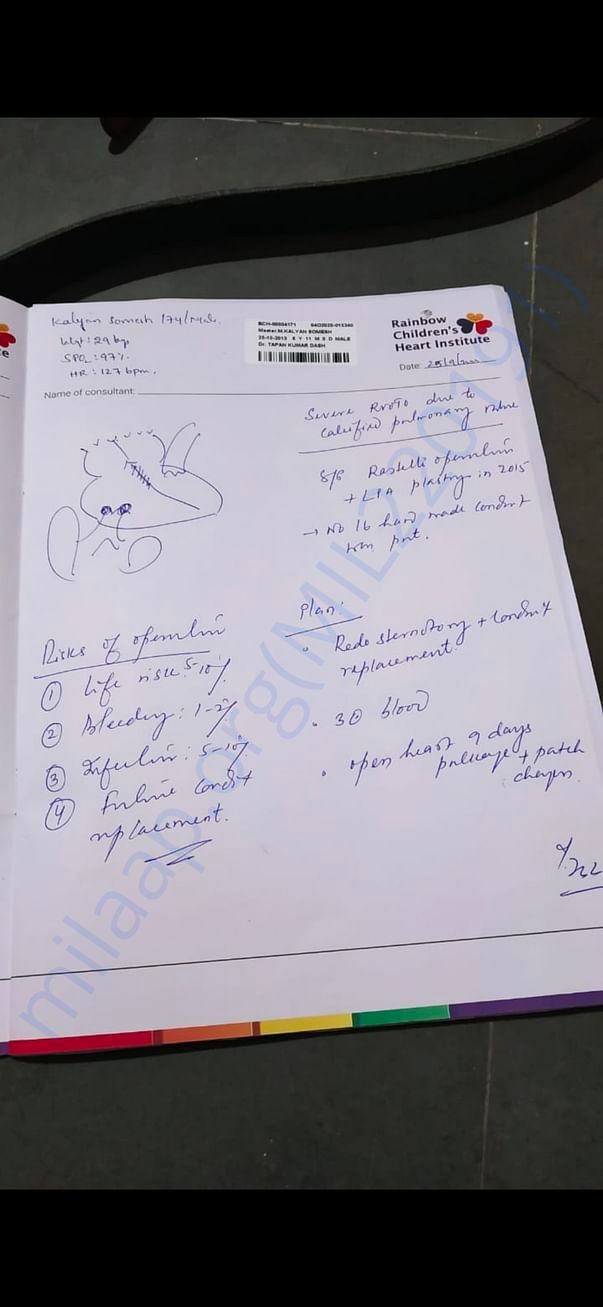 Kalyan Somesh 17y/Male.
wgt: 29 kg
SPO2: 97%
HR: 127 bpm.
BCH-00004171
Master.M.KALYAN SOMESH
25-10-2013 8 Y 11 M 5 D MALE
Dr. TAPAN KUMAR DASH
Rainbow
Children's
Heart Institute
Date:
Name of consultant:
Severe RVOTO due to
calcified pulmonary valve
S/p Rastelli operation
+ LPA plasty in 2015
→ No 16 hand made conduit
Risks of operation
① Life risk: 5-10%
② Bleeding: 1-2%
③ Infection: 5-10%
④ Future conduit
replacement.
Plan:
• Redo sternotomy + conduit
replacement.
• 3 blood
• open heart 9 days
package + patch
charges.
milaap.org(MIL22019